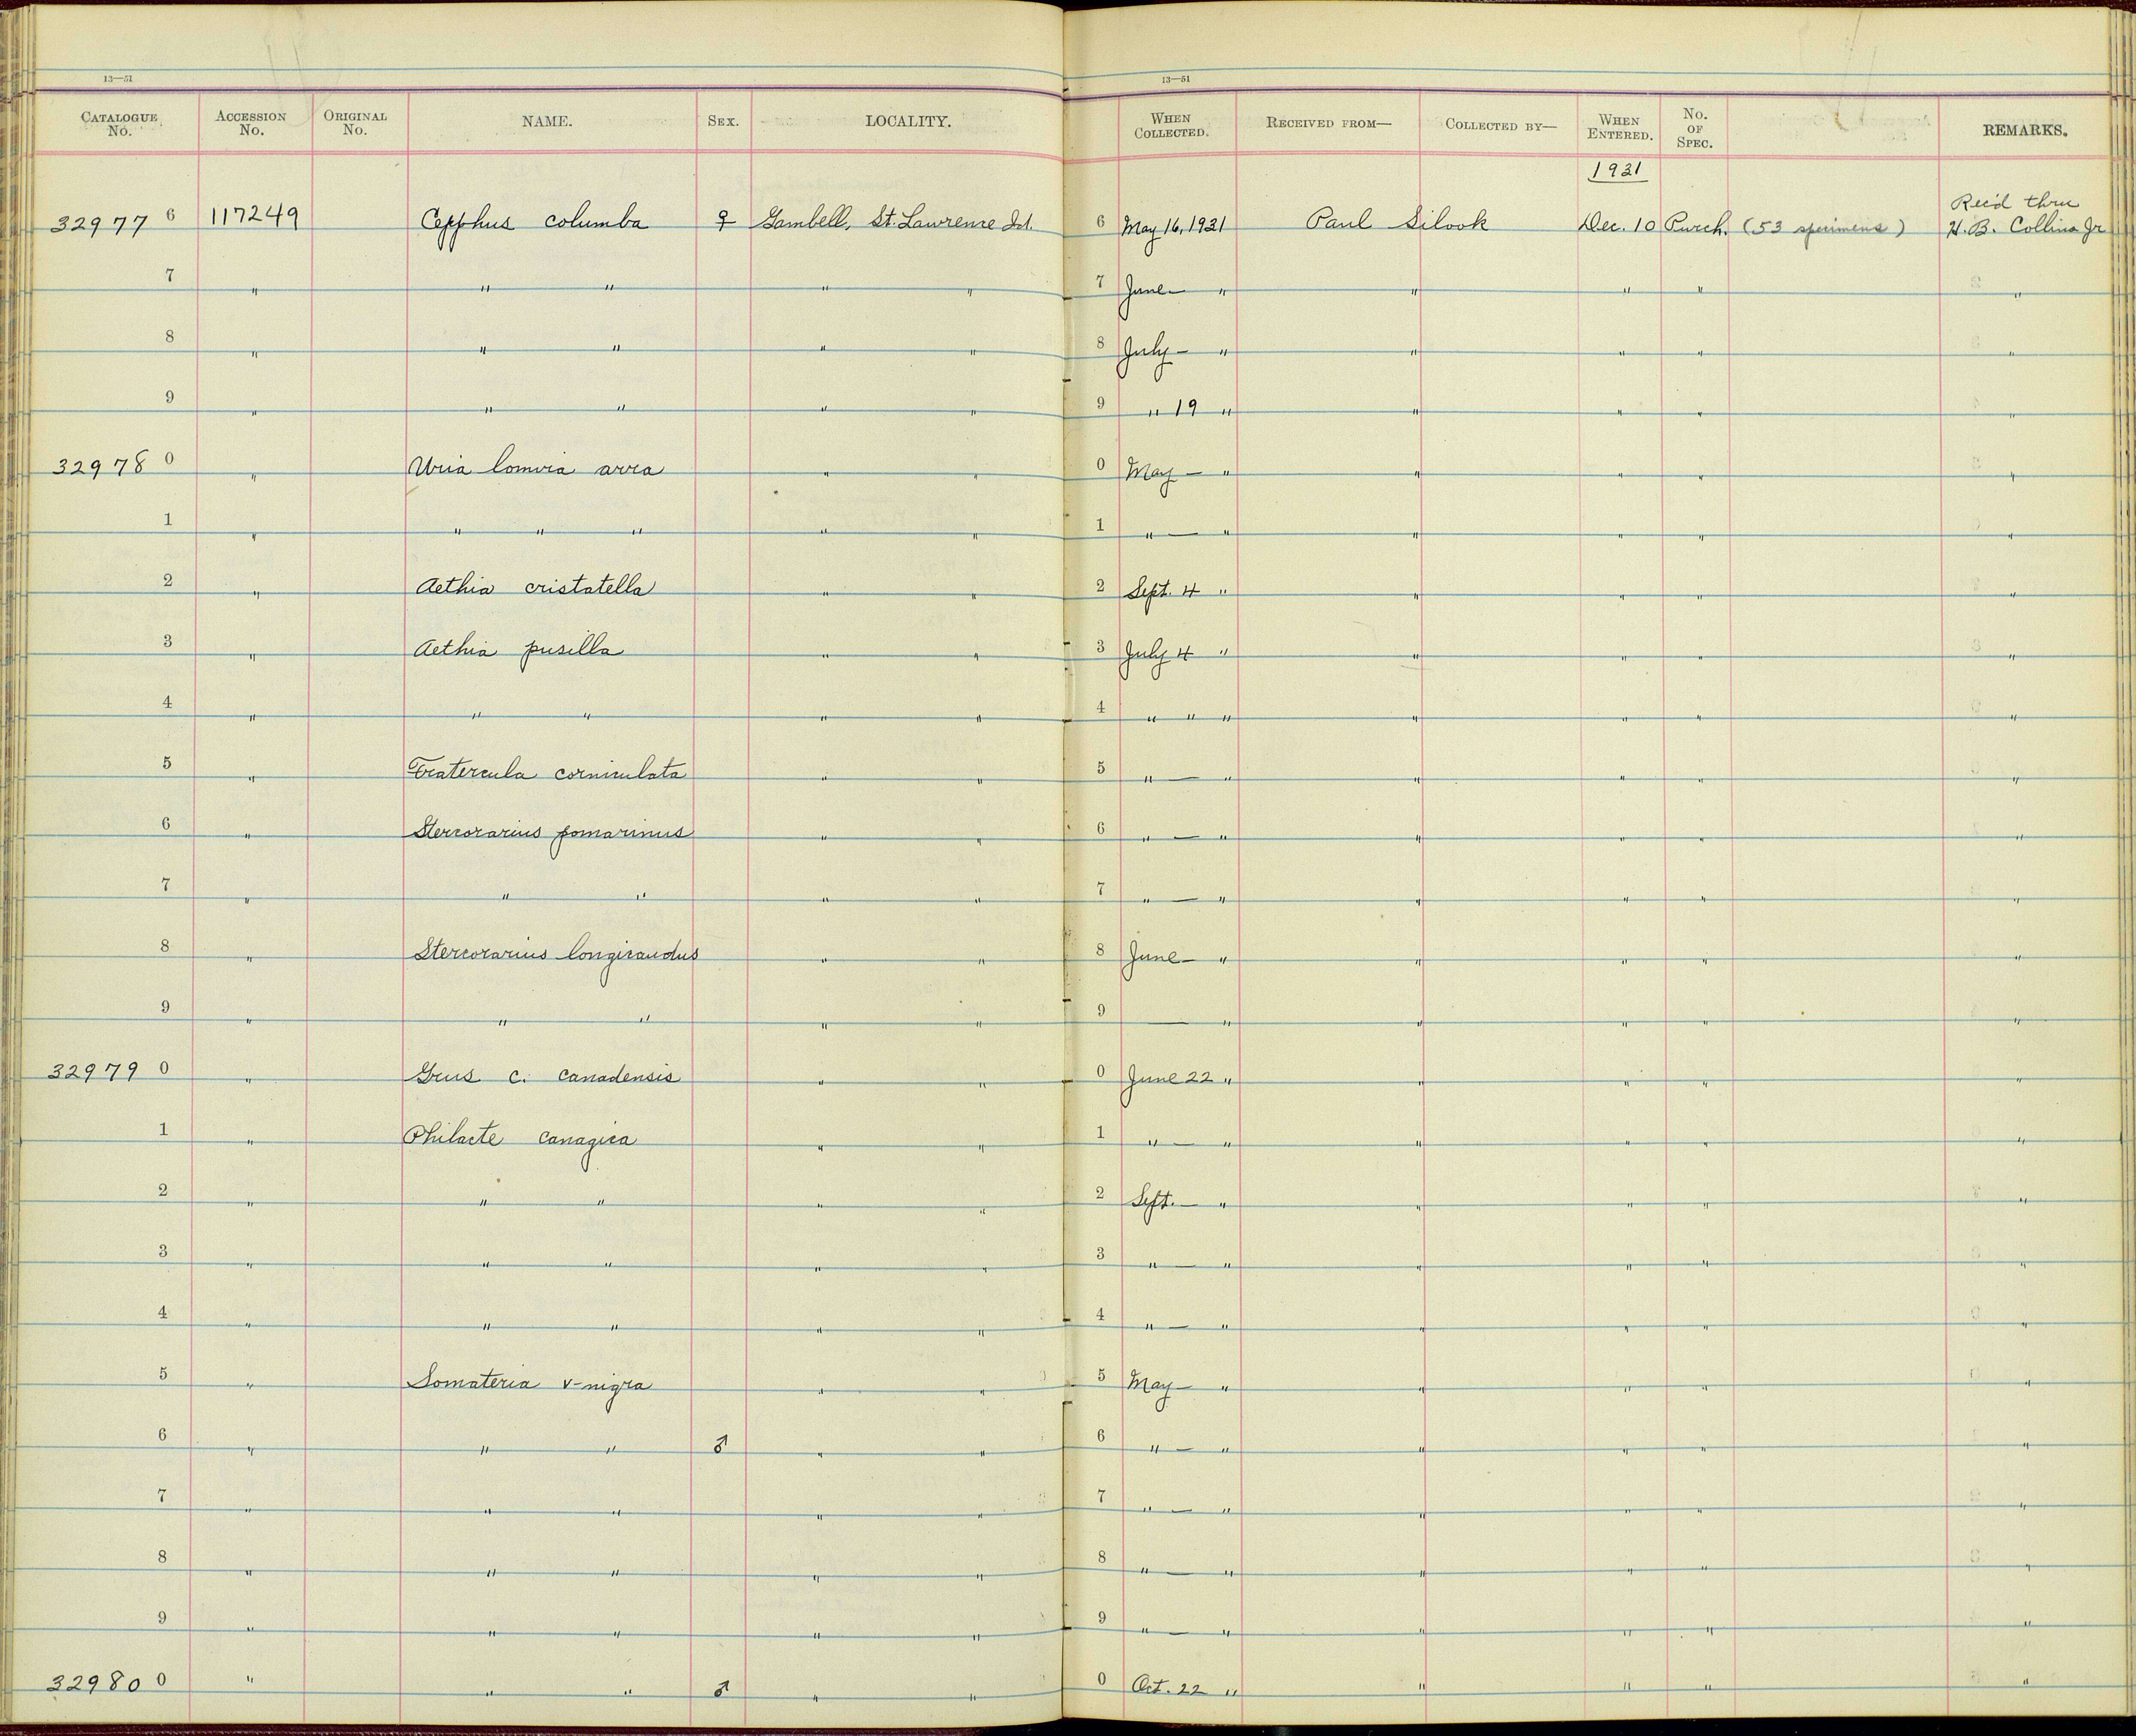 13—51 13—51
CATALOGUE No. ACCESSION No. ORIGINAL No. NAME. SEX. LOCALITY. WHEN COLLECTED. RECEIVED FROM— COLLECTED BY— WHEN ENTERED. No. OF SPEC. REMARKS.
1931
32977 6 117249 Cepphus columba ♀ Gambell, St. Lawrence Isl. 6 May 16, 1931 Paul Silook Dec. 10 Purch. (53 specimens) Rec'd thru H. B. Collins Jr
7 " " " " " 7 June — " " " " "
8 " " " " " 8 July — " " " " "
9 " " " " " 9 " 19 " " " " "
32978 0 " Uria lomvia arra " " 0 May — " " " " "
1 " " " " " " 1 " — " " " " "
2 " Aethia cristatella " " 2 Sept. 4 " " " " "
3 " Aethia pusilla " " 3 July 4 " " " " "
4 " " " " " 4 " " " " " " "
5 " Fratercula corniculata " " 5 " — " " " " "
6 " Stercorarius pomarinus " " 6 " — " " " " "
7 " " " " " 7 " — " " " " "
8 " Stercorarius longicaudus " " 8 June — " " " " "
9 " " " " " 9 — " " " " "
32979 0 " Grus c. canadensis " " 0 June 22 " " " " "
1 " Philacte canagica " " 1 " — " " " " "
2 " " " " " 2 Sept. — " " " " "
3 " " " " " 3 " — " " " " "
4 " " " " " 4 " — " " " " "
5 " Somateria v-nigra " " 5 May — " " " " "
6 " " " ♂ " " 6 " — " " " " "
7 " " " " " 7 " — " " " " "
8 " " " " " 8 " — " " " " "
9 " " " " " 9 " — " " " " "
32980 0 " " " ♂ " " 0 Oct. 22 " " " " "